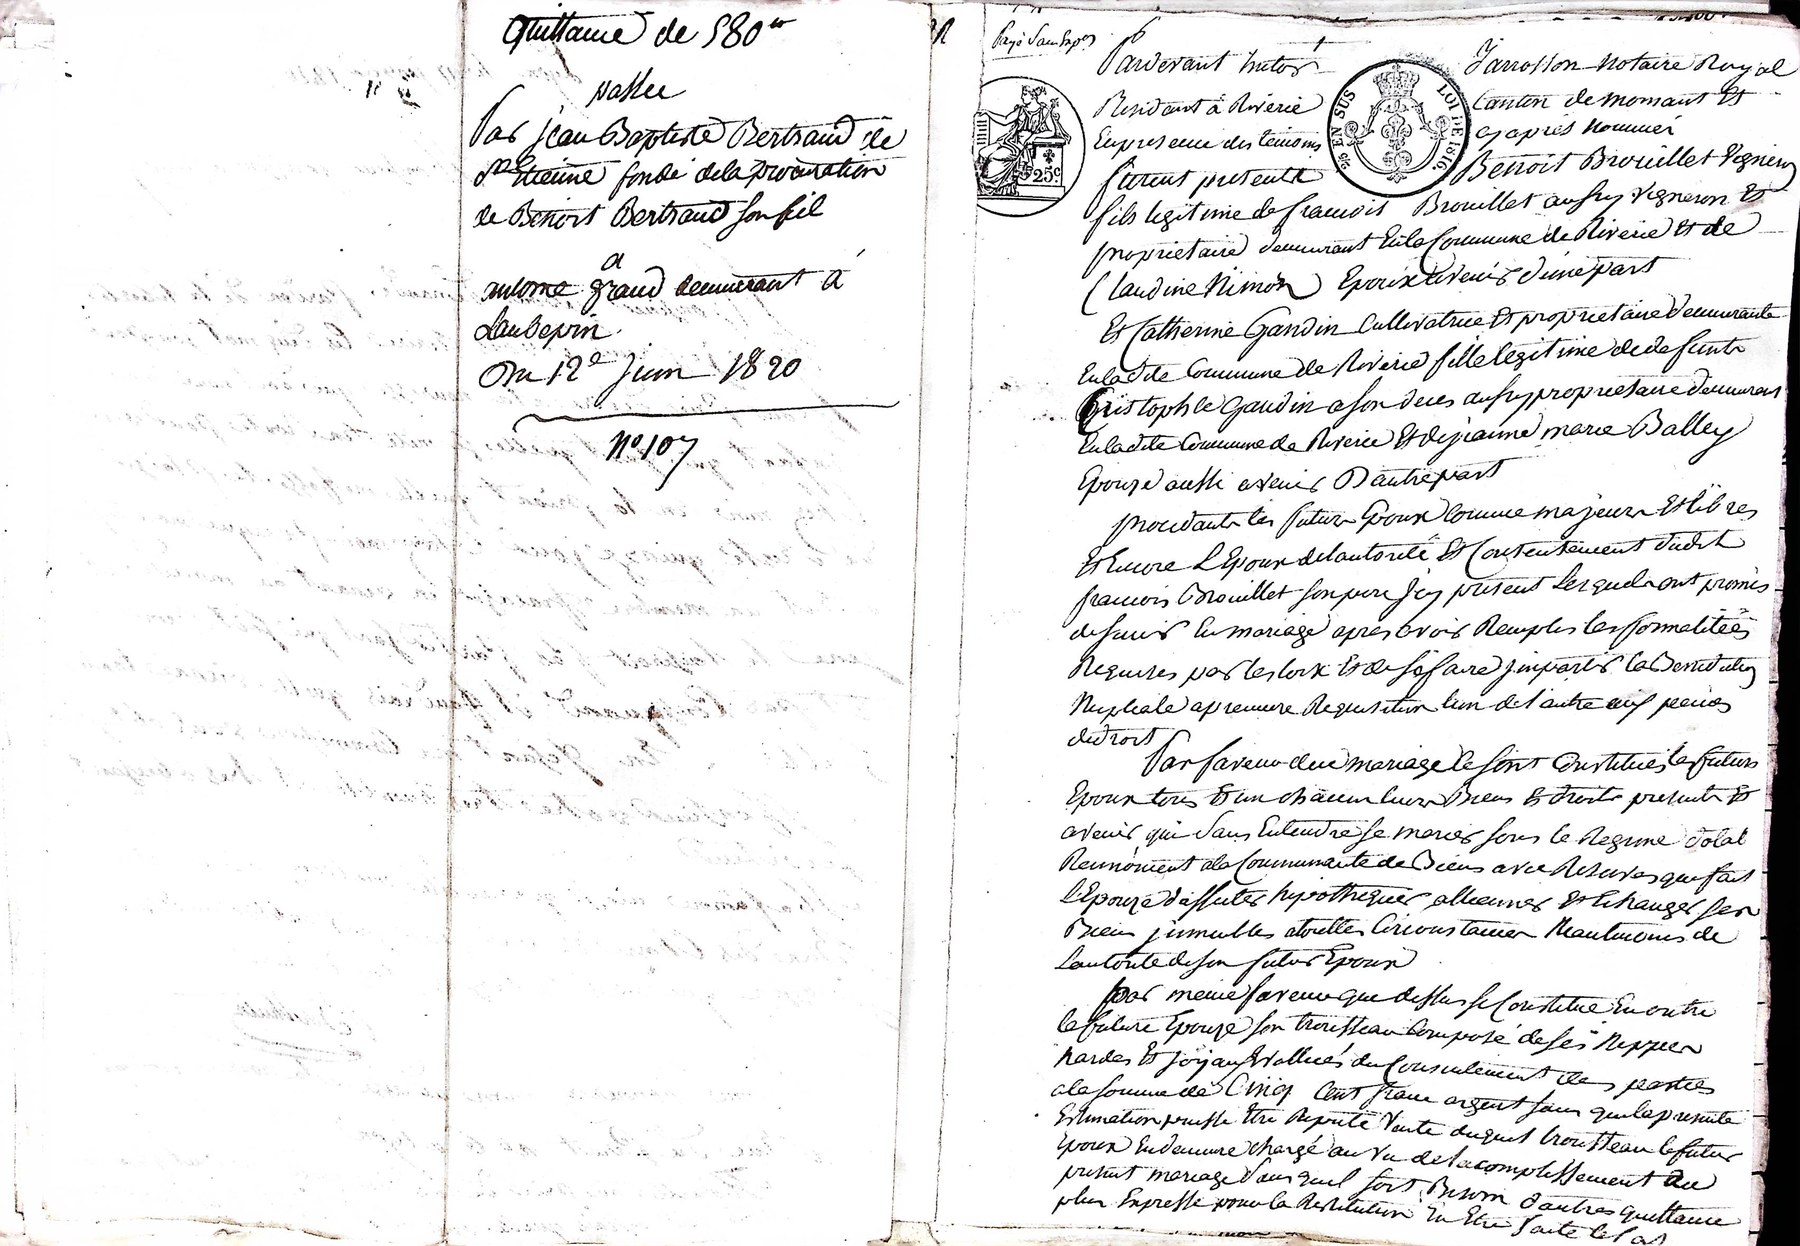 Quittance de 580 tt
passée
Par jean Baptiste Bertrand de
St Etienne fondé de la procuration
de Benoit Bertrand son fil
a
antome grand demeurant à
Laubepin
Du 12e Juin 1820
N° 107
Pardevant Victor Jarrosson Notaire Royal
Residant à Riverie Canton de mornant Et
En presence des temoins cy après nommés
furent presents Benoit Brouillet Vigneron
fils legitime de francois Brouillet aussy vigneron Et
proprietaire demeurant En la Commune de Riverie Et de
Claudine Rimon Epoux avenir d'une part
Et Catherine Gaudin Cultivatrice Et proprietaire demeurante
En lad.te Commune de Riverie fille legitime de defunt
Cristophle Gaudin a son deces aussy proprietaire demeurant
En ladite Commune de Riverie Et de jeanne marie Balley
Epouze aussi avenir D'autre part
procedants les futurs Epoux Comme majeurs Et libres
Et Encore L'Epoux de l'autorité Et Consentement dudit
francois Brouillet son pere Jcy present Lesquels ont promis
de s'unir En mariage apres avoir Remplis les formalitées
Requises par les loix Et de se faire jmpartir la Benediction
Nuptiale a premiere Requisition l'un de l'autre aux peines
de droit
Par faveur du mariage se sont Constitués les futurs
Epoux tous Et un chacun leurs Biens Et droits presents Et
avenir qui Sans Entendre se marier sous le Regime dotal
Renoncent a la Communauté de Biens avec Reserves que fait
L'Epouze d'assuter hipothequer alliener Et Echanger ses
Biens jmmeubles a toutes Circonstances Neantmoins de
L'autorité de son futur Epoux
par meme faveur que dessus se Constitue En outre
la future Epouze son trousseau Composé de ses Nippes
hardes Et joyaux Evallués du Consentement des parties
a la somme de Cinq Cent francs argent sans que la presente
Estimation puisse Etre Reputé Vente duquel trousseau le futur
Epoux En demeure chargé au Vu de l'acomplissement du
present mariage Sans quil soit Besoin d'autres quittance
plus Expresse pour la Restitution En Etre faite le Cas
25c
EN SUS LOI DE 1816